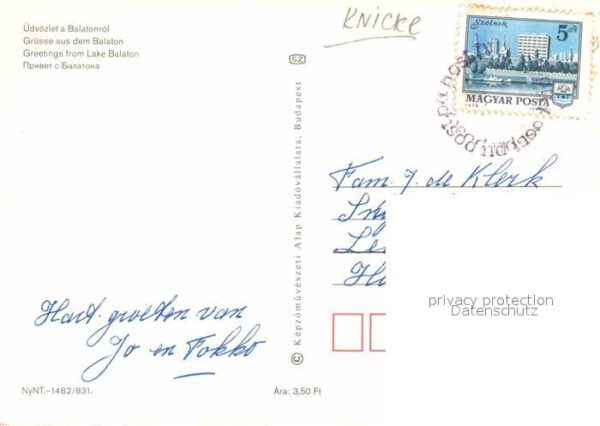 Üdvözlet a Balatonról
Grüsse aus dem Balaton
Greetings from Lake Balaton
Привет с Балатона
KNICKE
SZ
Szolnok
5 Ft
MAGYAR POSTA
Fam. J. de Klerk
privacy protection
Datenschutz
Hart. groeten van
Jo en Fokko
© Képzőművészeti Alap Kiadóvállalata, Budapest
NyNT.–1482/831.
Ára: 3,50 Ft